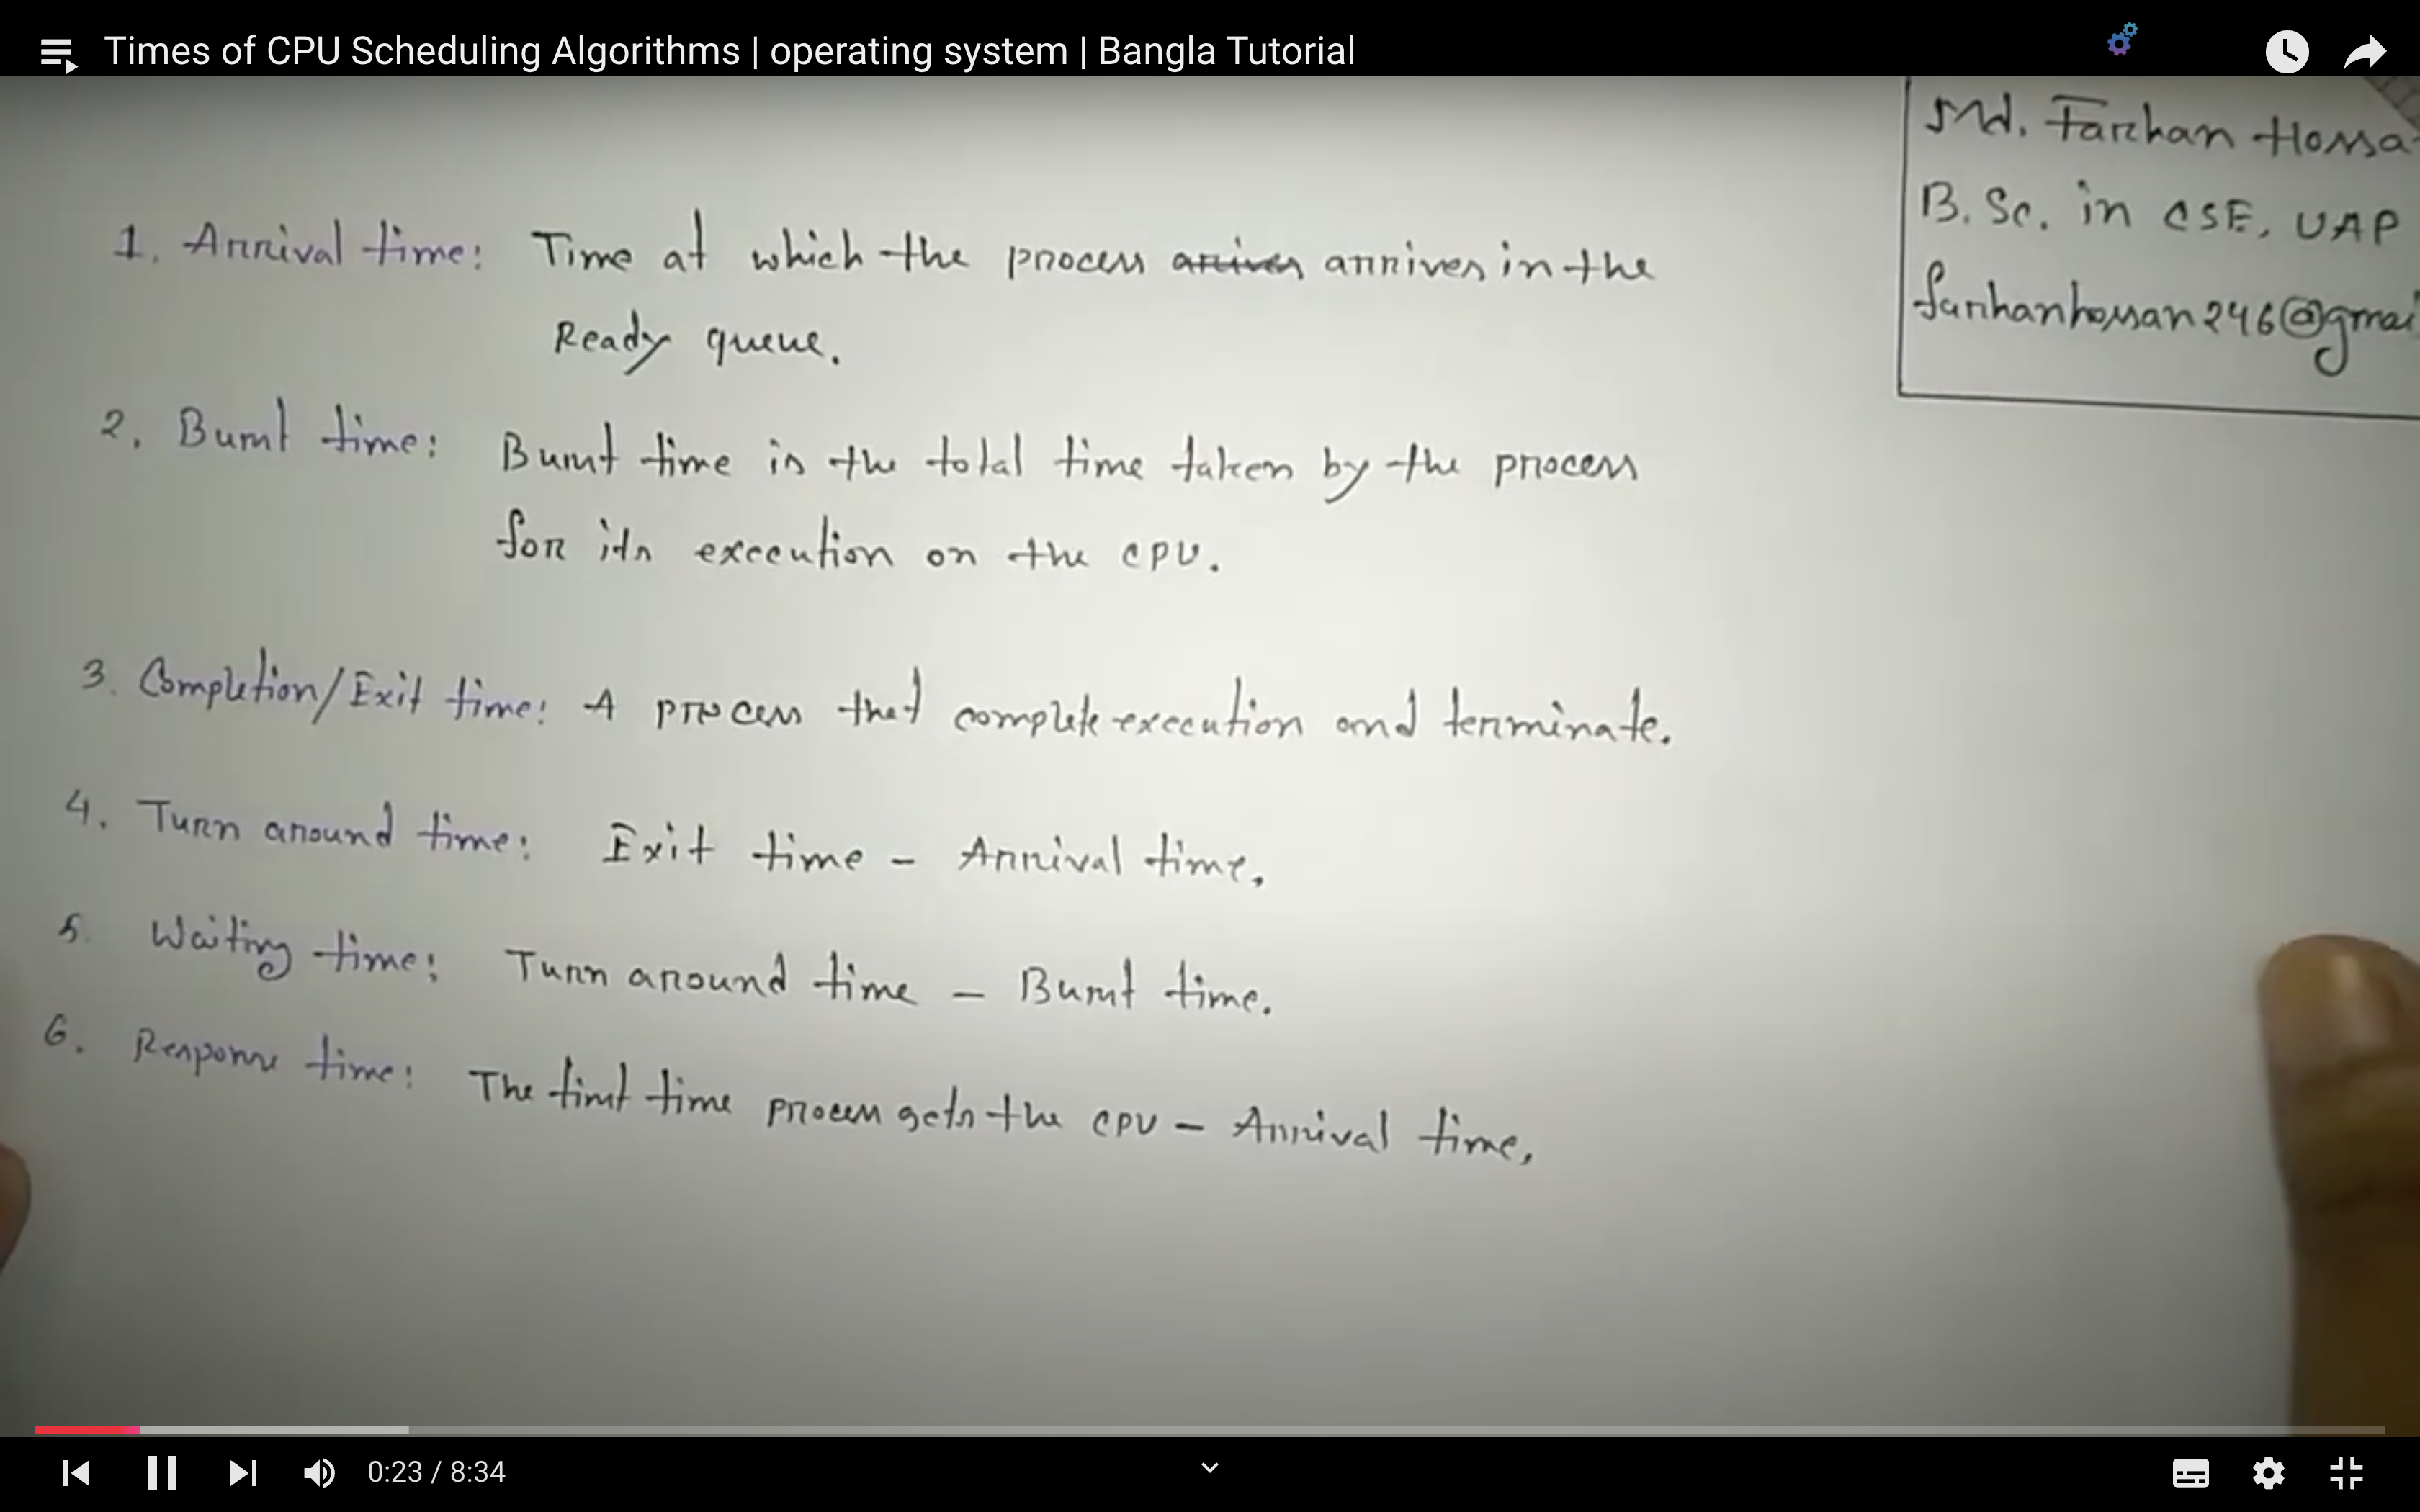 Times of CPU Scheduling Algorithms | operating system | Bangla Tutorial
Md. Farhan Hossa
B.Sc. in CSE, UAP
farhanhossan246@gmai
1. Arrival time: Time at which the process arives arrives in the
Ready queue.
2. Burst time: Burst time is the total time taken by the process
for its execution on the CPU.
3. Completion/Exit time: A process that complete execution and terminate.
4. Turn around time: Exit time - Arrival time.
5. Waiting time: Turn around time - Burst time.
6. Response time: The first time process gets the CPU - Arrival time.
0:23 / 8:34